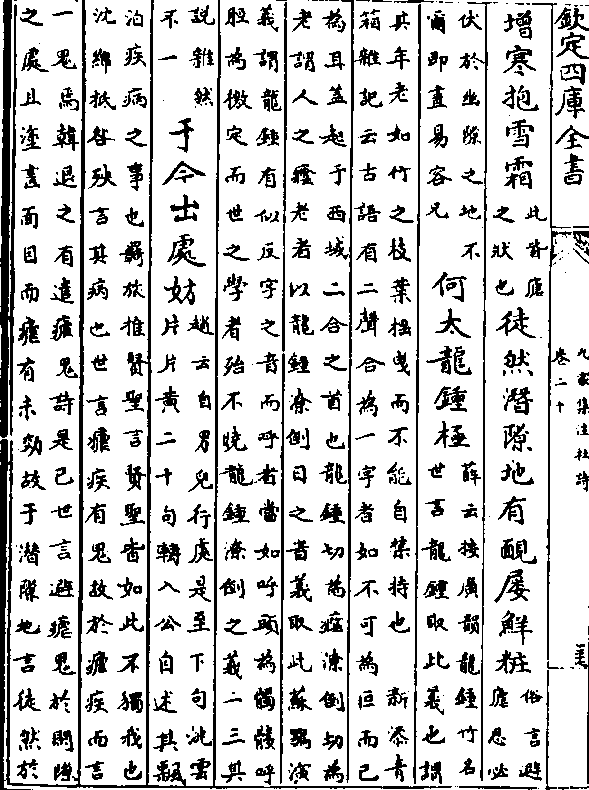 欽定四庫全書
九家集注杜詩
卷二十
增寒抱雪霜
此皆瘧
之狀也
徒然潛隙地有靦屢鮮粧
俗言避
瘧鬼必
伏於幽隙之地不
爾即畫易容皃
何太龍鍾極
薛云按廣韻龍鍾竹名
世言龍鍾取此義也謂
其年老如竹之枝葉揺曳而不能自禁持也 新添青
箱雜記云古語有二聲合為一字者如不可為叵而已
為耳蓋起于西域二合之音也龍鍾切為癃潦倒切為
老謂人之癃老者以龍鍾潦倒目之者義取此蘇鶚演
義謂龍鍾有似反字之音而呼者當如呼頭為髑髏呼
脛為檄定而世之學者殆不曉龍鍾潦倒之義二三其
說雖然
不一
于今出處妨
趙云自男兒行處是至下句洮雲
片片黃二十句轉入公自述其飄
泊疾病之事也羇旅推賢聖言賢聖皆如此不獨我也
沈綿抵咎殃言其病也世言瘧疾有鬼故於瘧疾而言
一鬼焉韓退之有遣瘧鬼詩是已世言避瘧鬼於閒隙
之處且塗畫面目而瘧有未効故于潛隙地言徒然於